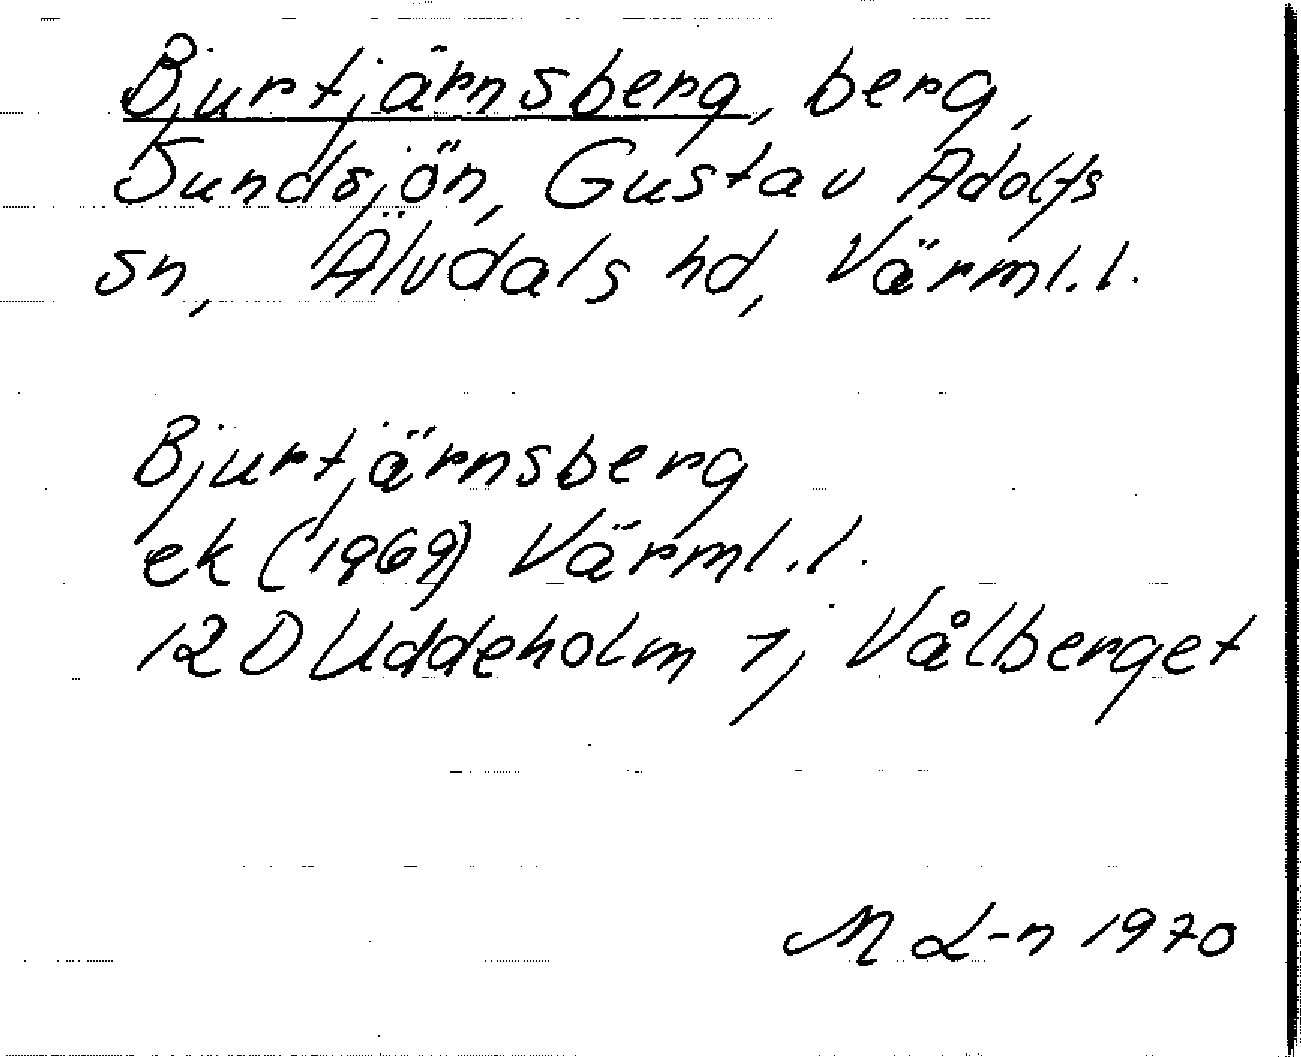 Bjurtjärnsberg, berg,
Sundsjön, Gustav Adolfs
sn, Älvdals hd, Värml.l.
Bjurtjärnsberg
ek (1969) Värml.l.
12D Uddeholm 7j Vålberget
M L-n 1970